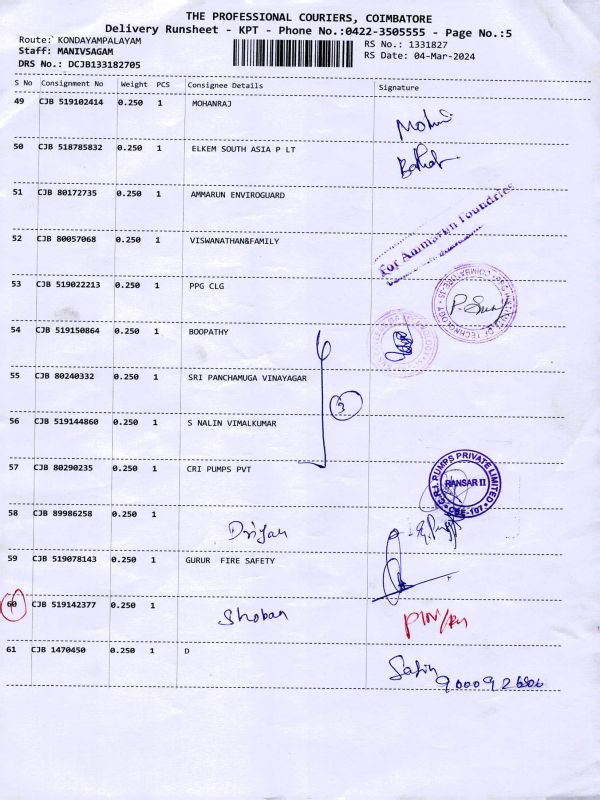 THE PROFESSIONAL COURIERS, COIMBATORE
Delivery Runsheet - KPT - Phone No.:0422-3505555 - Page No.:5
Route: KONDAYAMPALAYAM
Staff: MANIVSAGAM
DRS No.: DCJB133182705
RS No.: 1331827
RS Date: 04-Mar-2024
S No Consignment No Weight PCS Consignee Details Signature
49 CJB 519102414 0.250 1 MOHANRAJ
50 CJB 518785832 0.250 1 ELKEM SOUTH ASIA P LT
51 CJB 80172735 0.250 1 AMMARUN ENVIROGUARD
For Ammarun Foundries
52 CJB 80057068 0.250 1 VISWANATHAN&FAMILY
53 CJB 519022213 0.250 1 PPG CLG
54 CJB 519150864 0.250 1 BOOPATHY
55 CJB 80240332 0.250 1 SRI PANCHAMUGA VINAYAGAR
3
56 CJB 519144860 0.250 1 S NALIN VIMALKUMAR
57 CJB 80290235 0.250 1 CRI PUMPS PVT
C.R.I. PUMPS PRIVATE LIMITED
RANSAR II
CBE-107
58 CJB 89986258 0.250 1
59 CJB 519078143 0.250 1 GURUR FIRE SAFETY
60 CJB 519142377 0.250 1 Shoban
61 CJB 1470450 0.250 1 D